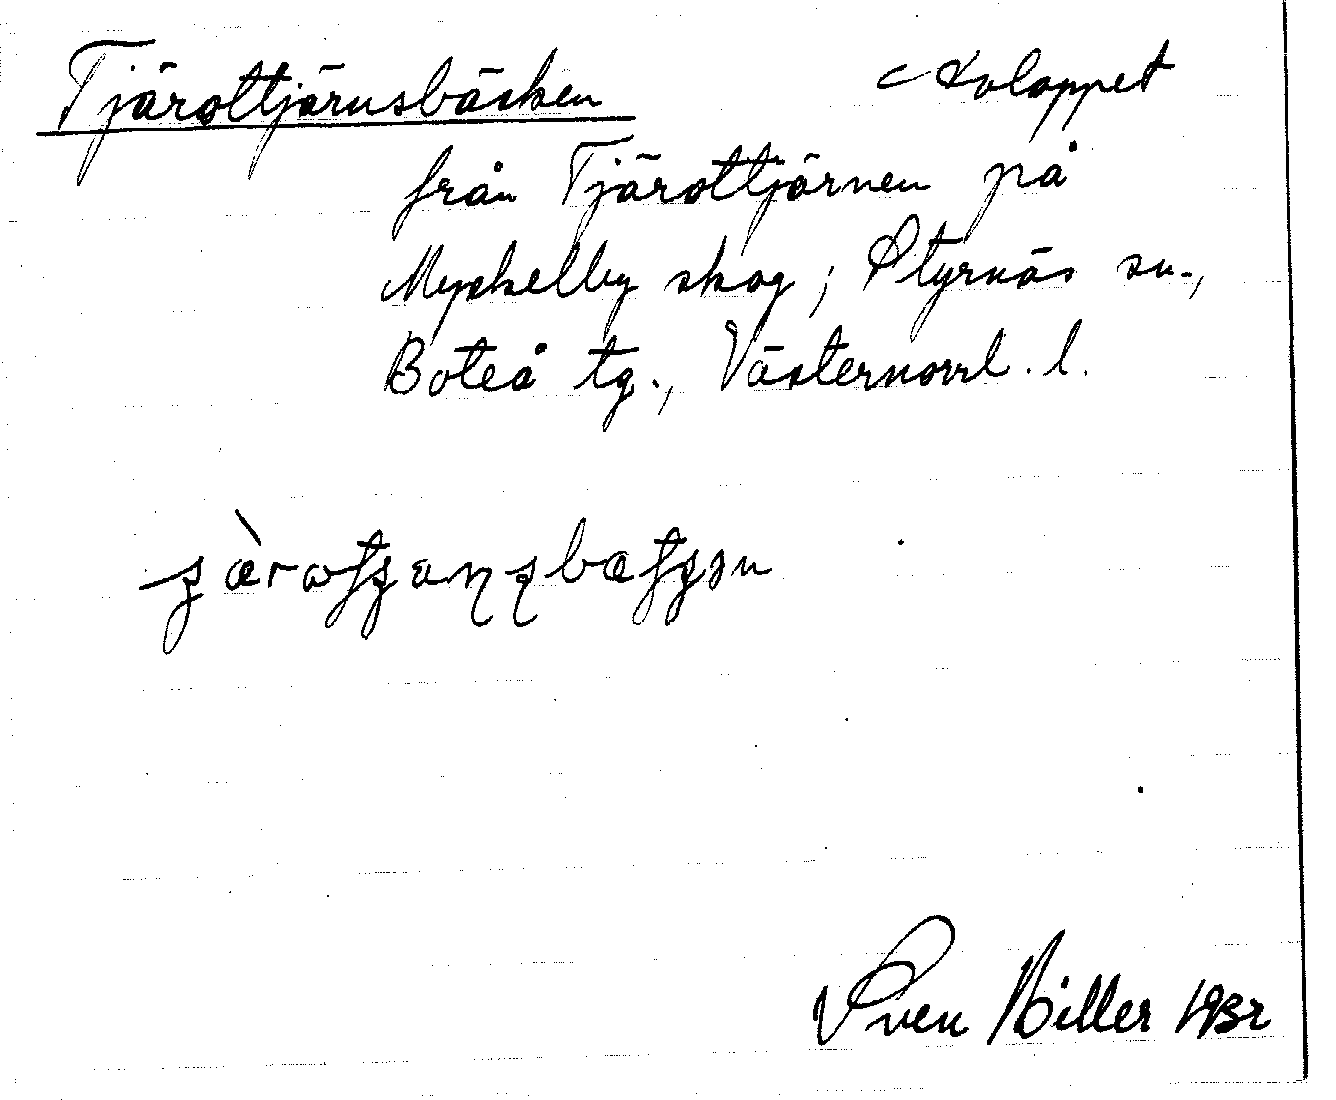 Tjärottjärnsbäcken avloppet
från Tjärottjärnen på
Myckelby skog; Styrnäs sn.,
Boteå tg., Västernorrl. l.
Sven Biller 1932